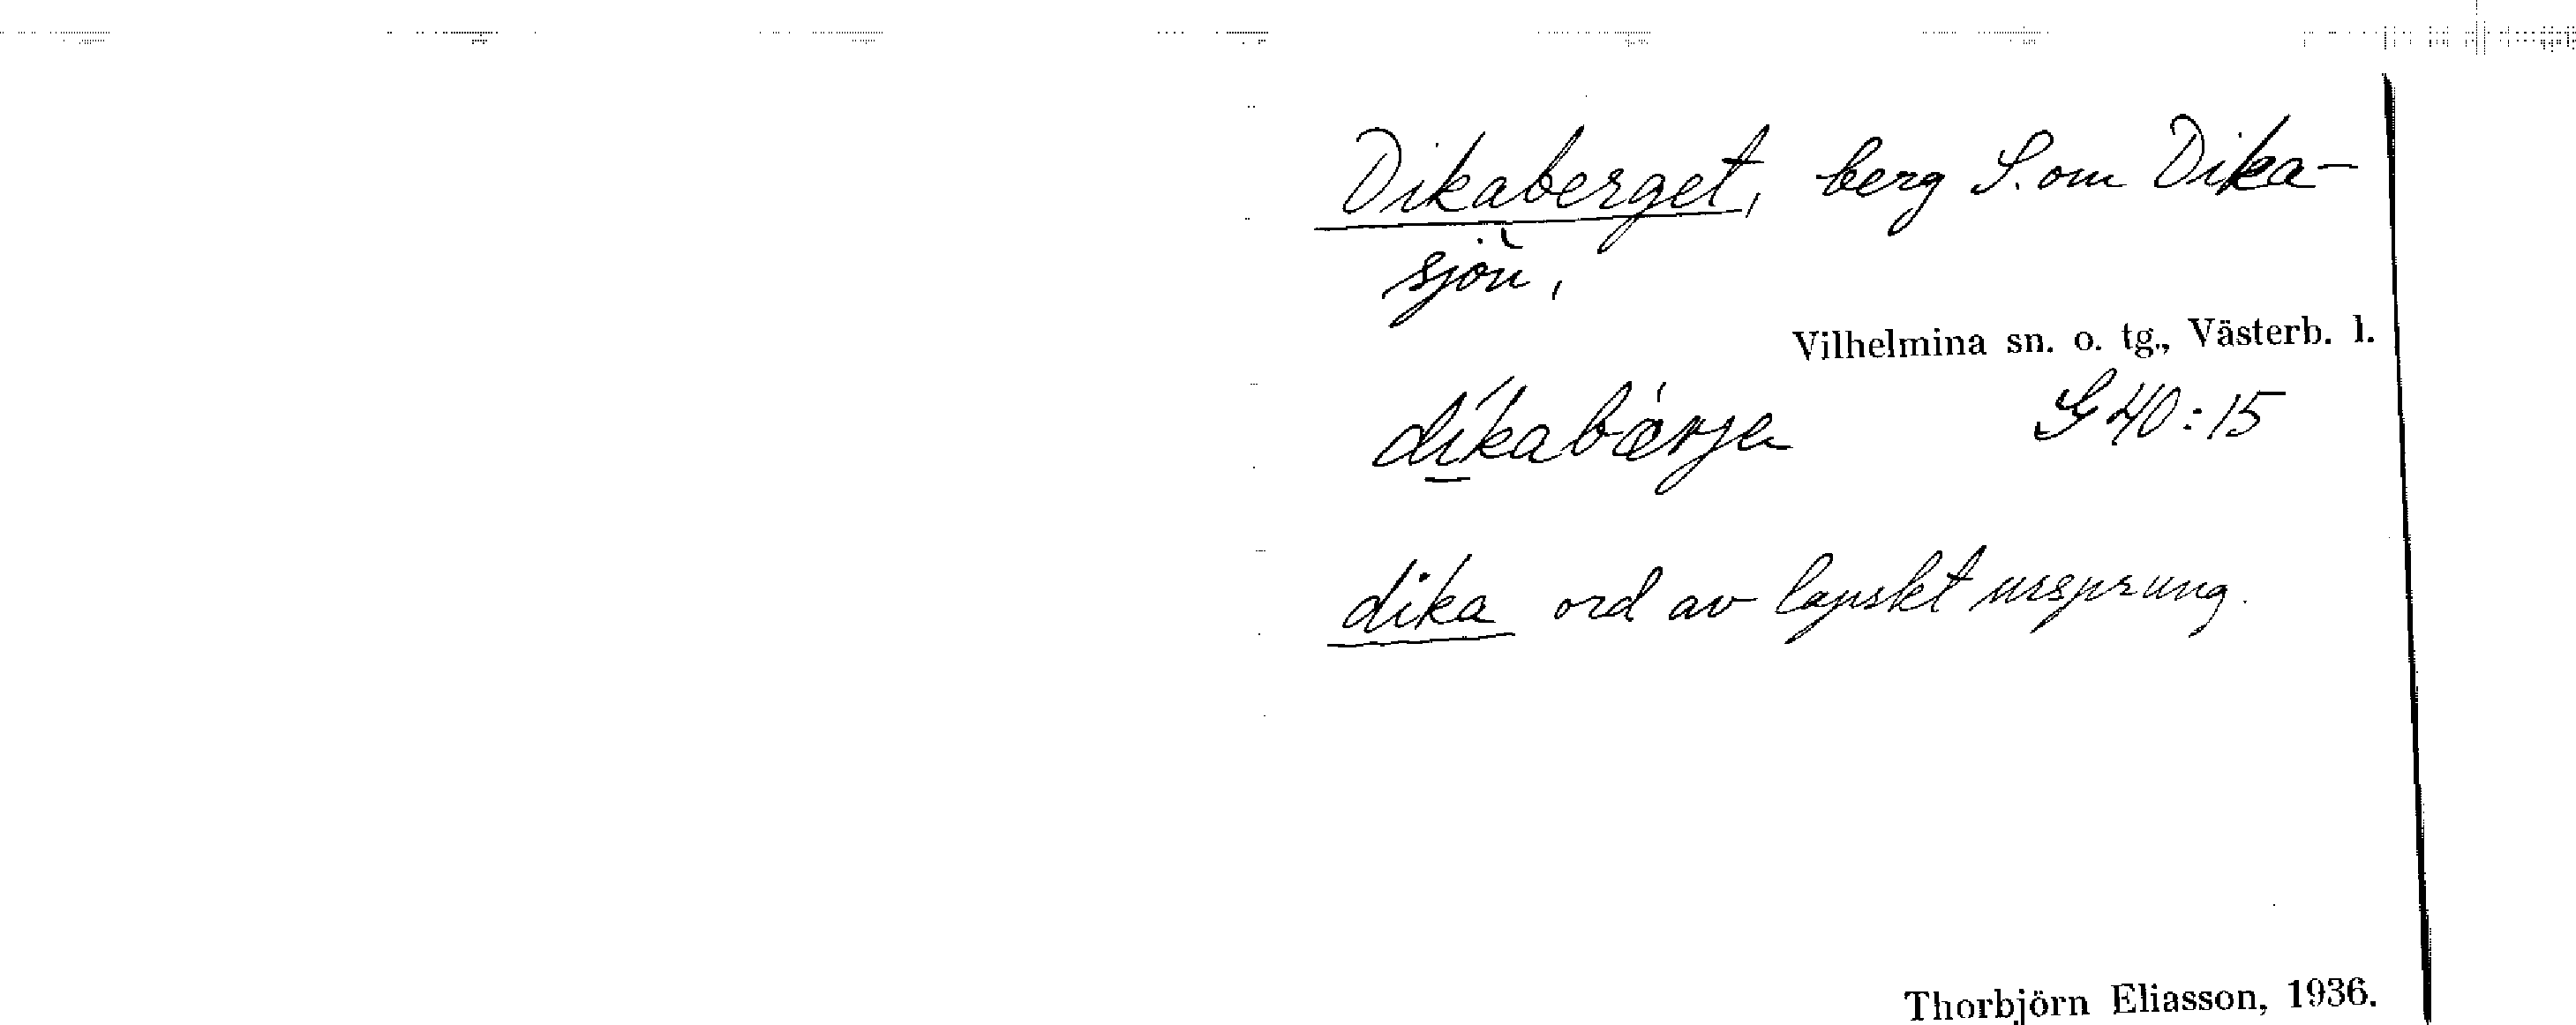 Dikaberget, berg S. om Dika-
sjön,
Vilhelmina sn. o. tg., Västerb. l.
dikabärje G 40:15
dika ord av lapskt ursprung.
Thorbjörn Eliasson, 1936.